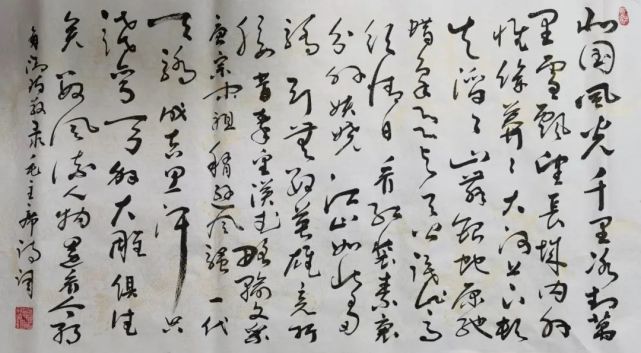 北国風光千里冰封萬
里雪飘望長城内外
惟馀莽々大河上下顿
失滔々山舞银蛇原驰
蜡象欲与天公试比高
须晴日看红装素裹
分外妖娆江山如此多
娇引無数英雄竞折
腰昔秦皇漢武略输文采
唐宗宋祖稍逊風骚一代
天骄成吉思汗只
识弯弓射大雕俱往
矣数風流人物還看今朝
敬录毛主席诗词